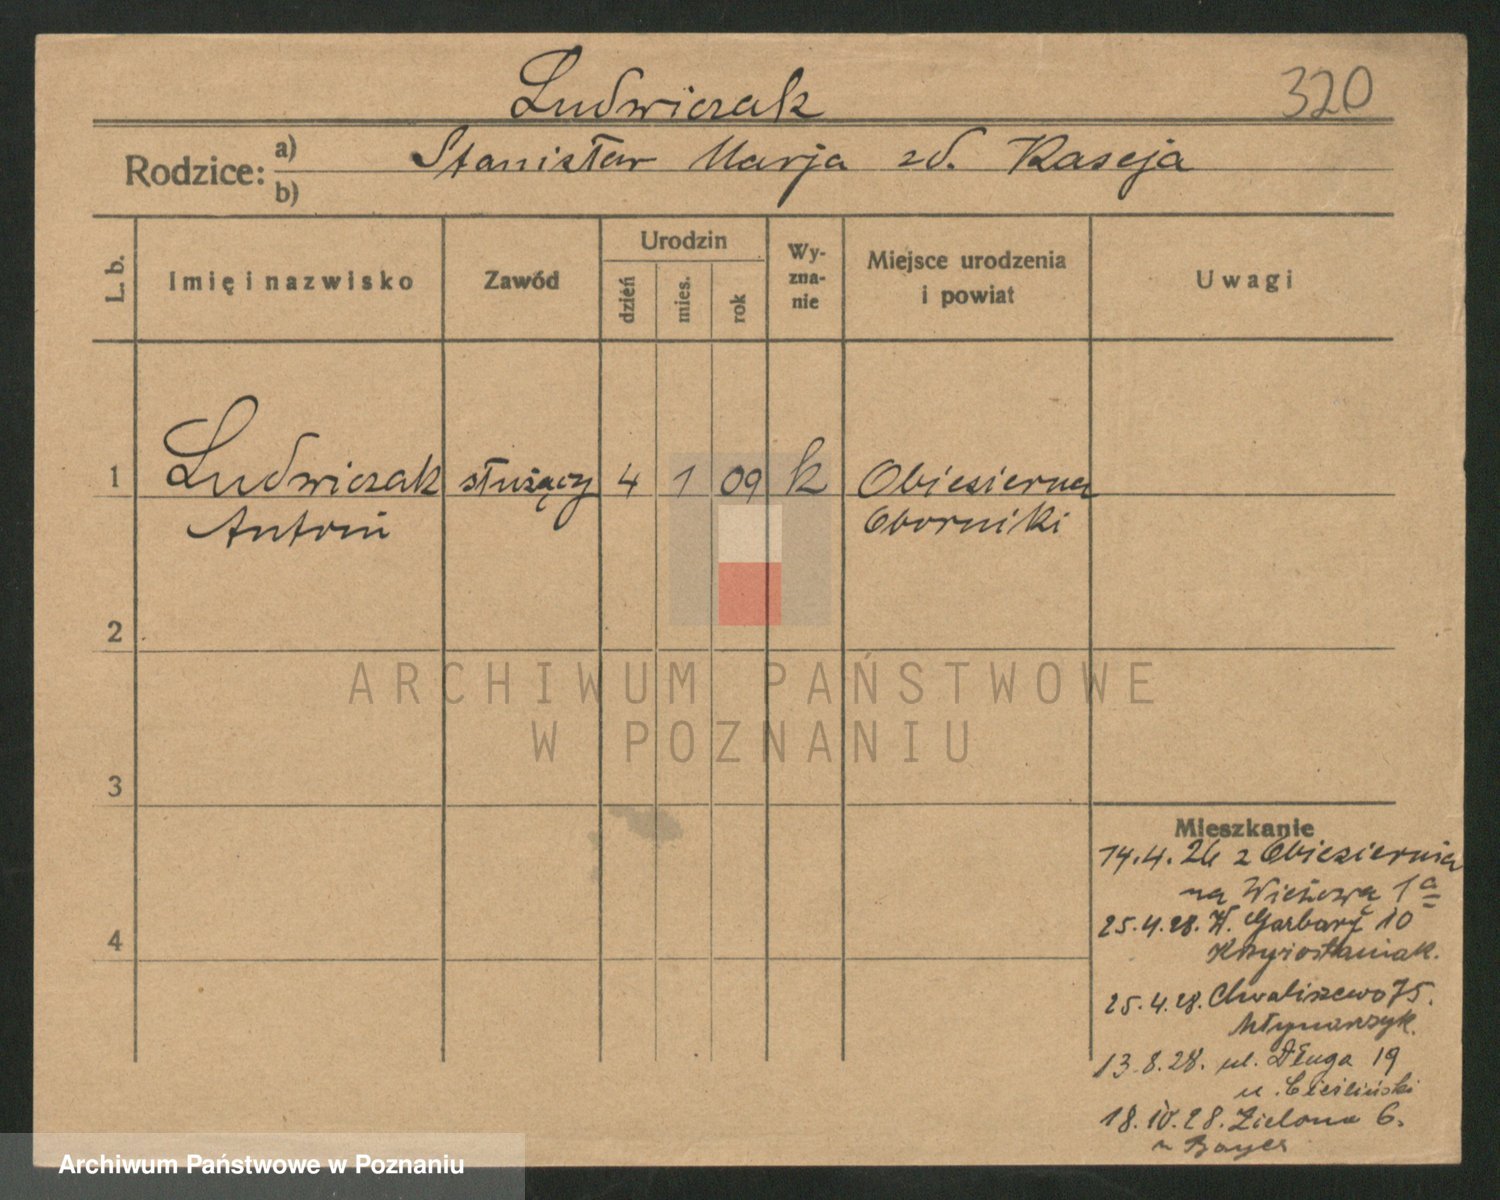 Ludwiczak
320
Rodzice: a) Stanisław Marja zd. Kaseja
b)
L. b.
Imię i nazwisko
Zawód
Urodzin
dzień
mies.
rok
Wy-
zna-
nie
Miejsce urodzenia
i powiat
Uwagi
1 Ludwiczak służący 4 1 09 k Obiezierna
Antoni Oborniki
2
3
4
ARCHIWUM PAŃSTWOWE
W POZNANIU
Mieszkanie
14.4.26 z Obieziernia
na Wieżową 1a
25.4.28. W. Garbary 10
25.4.28. Chwaliszewo 75.
Młynarczyk.
13.8.28. ul. Długa 19
u. Cieśliński
18.IV.28. Zielona 6.
u Bayer
Archiwum Państwowe w Poznaniu